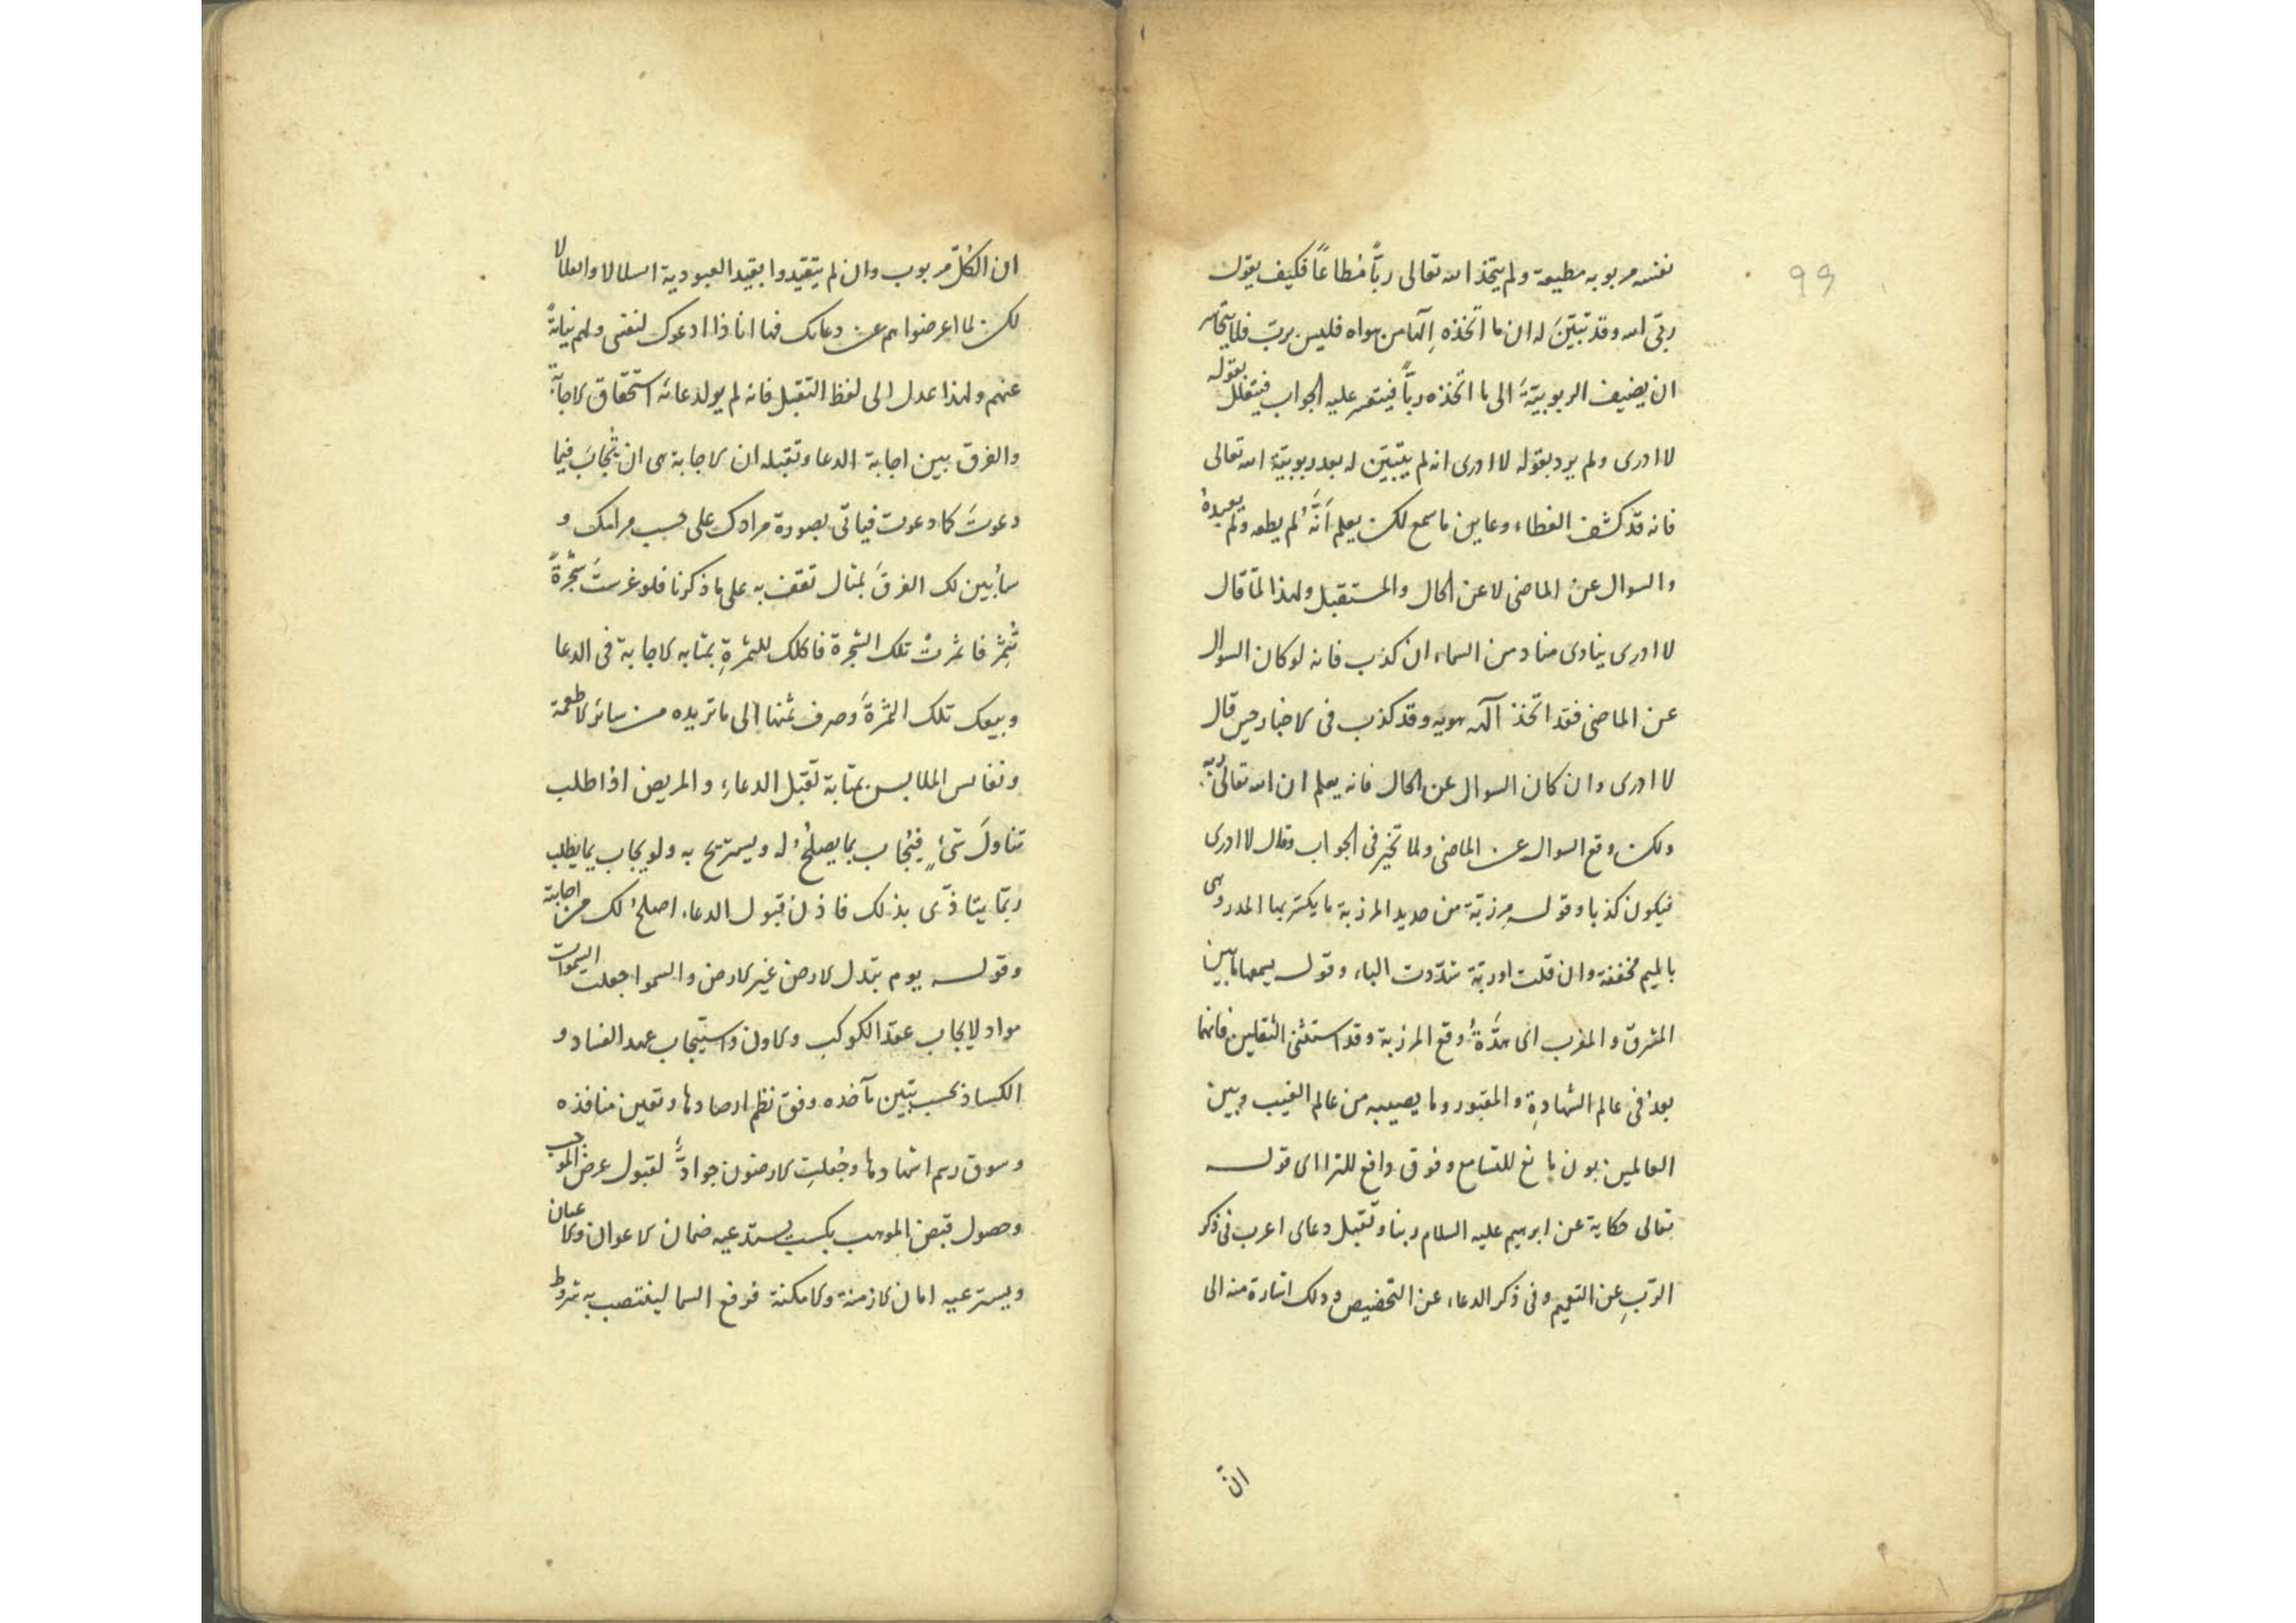 99
نفسه مربوبه مطیعة ولم یتخذ الله تعالی ربّاً مُطاعاً فکیف یقول
ربّی الله وقد تبیّنَ له ان ما اتّخذه اِلٓها من هواه فلیس بربّ
ان یضیف الربوبیّةَ الی ما اتّخذه ربّاً فیتعسر علیه الجواب فیتعلل بقوله
لا ادری ولم یرد بقوله لا ادری انه لم یتبیّن له بعد ربوبیّة الله تعالی
فانه قد کشف الغطاء وعاین ما سمع لکن یعلم اَنَّهُ لم یطعه ولم یعبده
والسوال عن الماضی لا عن الحال والمستقبل ولهذا لمّا قال
لا ادری ینادی مناد من السماء ان کذب فانه لو کان السوال
عن الماضی فقد اتخذ الٓهه هویه وقد کذب فی الاخبار حین قال
لا ادری وان کان السوال عن الحال فانه یعلم ان الله تعالی ربّه
ولکن وقع السوال عن الماضی ولما تحیّر فی الجواب وقال لا ادری
فیکون کذبا وقوله مِرزبّة من حدید المرزبة ما یکسّر بها المدر وهی
بالمیم مخففة وان قلت ارزبّة شدّدت الباء وقوله یسمعها ما بین
المشرق والمغرب ای هَدَّةُ وقع المرزبة وقد استثنی الثقلین فانهما
بعدُ فی عالم الشهادةِ والمقبور وما یصیبه من عالم الغیب وبین
العالمین بون مانع للتسامع وفوق دافع للترا ای قوله
تعالی حکایة عن ابرهیم علیه السلام ربنا وتقبل دعای اعرب فی ذکر
الرّبِ عن التعمیم وفی ذکر الدعاء عن التخصیص وذلک اشارة منه الی
انّ
ان الکلّ مربوب وان لم یتقیّدوا بقید العبودیة
لکن لما اعرضوا هم عن دعائک فها انا ذا ادعوک لنفسی ولهم نیابةً
عنهم ولهذا عدل الی لفظ التقبل فانه لم یر لدعائه استحقاق الاجابة
والفرق بین اجابة الدعا وتقبله ان الاجابة هی ان تُجابَ فیما
دعوتَ کما دعوت فیاتی بصورة مرادک علی حسب مرامک و
سأُبین لک الفرقَ بمثال تقف به علی ما ذکرنا فلو غرستَ شجرةً
تُثمِرُ فاثمرتْ تلک الشجرة فاکلک للثمرةِ بمثابه الاجابة فی الدعا
وبیعک تلک الثمرةَ وصرف ثمنها الی ما تریده من سائر الاطعمة
ونفائس الملابس بمثابة تقبّل الدعاءِ والمریض اذا طلب
تناولَ شئٍ فیُجاب بما یصلحُ له ویستریح به ولو یجاب بما یطلب
ربّما یتاذّی بذلک فاذن قبول الدعاء اصلحُ لک من اجابته
وقوله یوم تبدل الارض غیر الارض والسموا جعلت السموات
مواد لایجاب عقد الکوکب والاون واستیجاب عهد الفساد و
الکساد بحسب تبین مآخذه وفق نظم ارصادها وتعین منافذه
وسوق رسم اشهادها وجُعلتِ الارضون لقبول عرض الموجب
وحصول قبض الموهب بکسب یستدعیه ضمان الاعوان والاعیان
ویسترعیه امان الازمنة والامکنة فرفع السما لینتصب به شروط